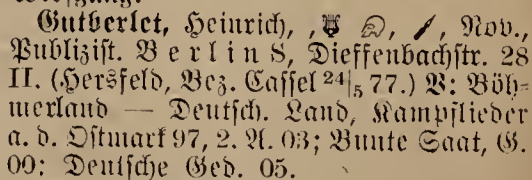 Gutberlet, Heinrich, , Nov.,
Publizist. Berlin S, Dieffenbachstr. 28
II. (Hersfeld, Bez. Cassel 24|5 77.) V: Böh-
merland — Deutsch. Land, Kampflieder
a. d. Ostmark 97, 2. A. 03; Bunte Saat, G.
00; Deutsche Ged. 05.